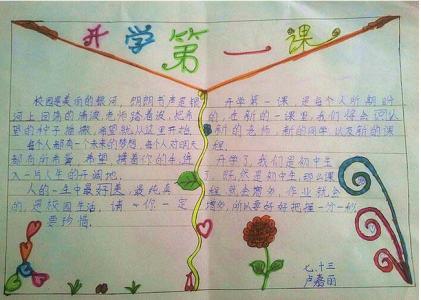 开学第一课
校园是美丽的银河，朗朗书声是银
河上回荡的清波，老师踏着波，把希
望的种子播撒，希望就从这里开始。
每个人都有一个未来的梦想，每个人对明天
都有所希望，希望 载着你的生活
入一片人生的开阔地。
人的一生中最好美、最纯真
的是校园生活，请 你一定
要珍惜。
开学第一课，是每个人所期盼
的，在新的一课里，我们将会
新的老师，新的同学，以及新的课
程。
开学了，我们是初中生
了，既然是初中生，那么课
程就会增多，作业就会
增多，所以要好好把握一分一秒
七.十三
卢嘉丽